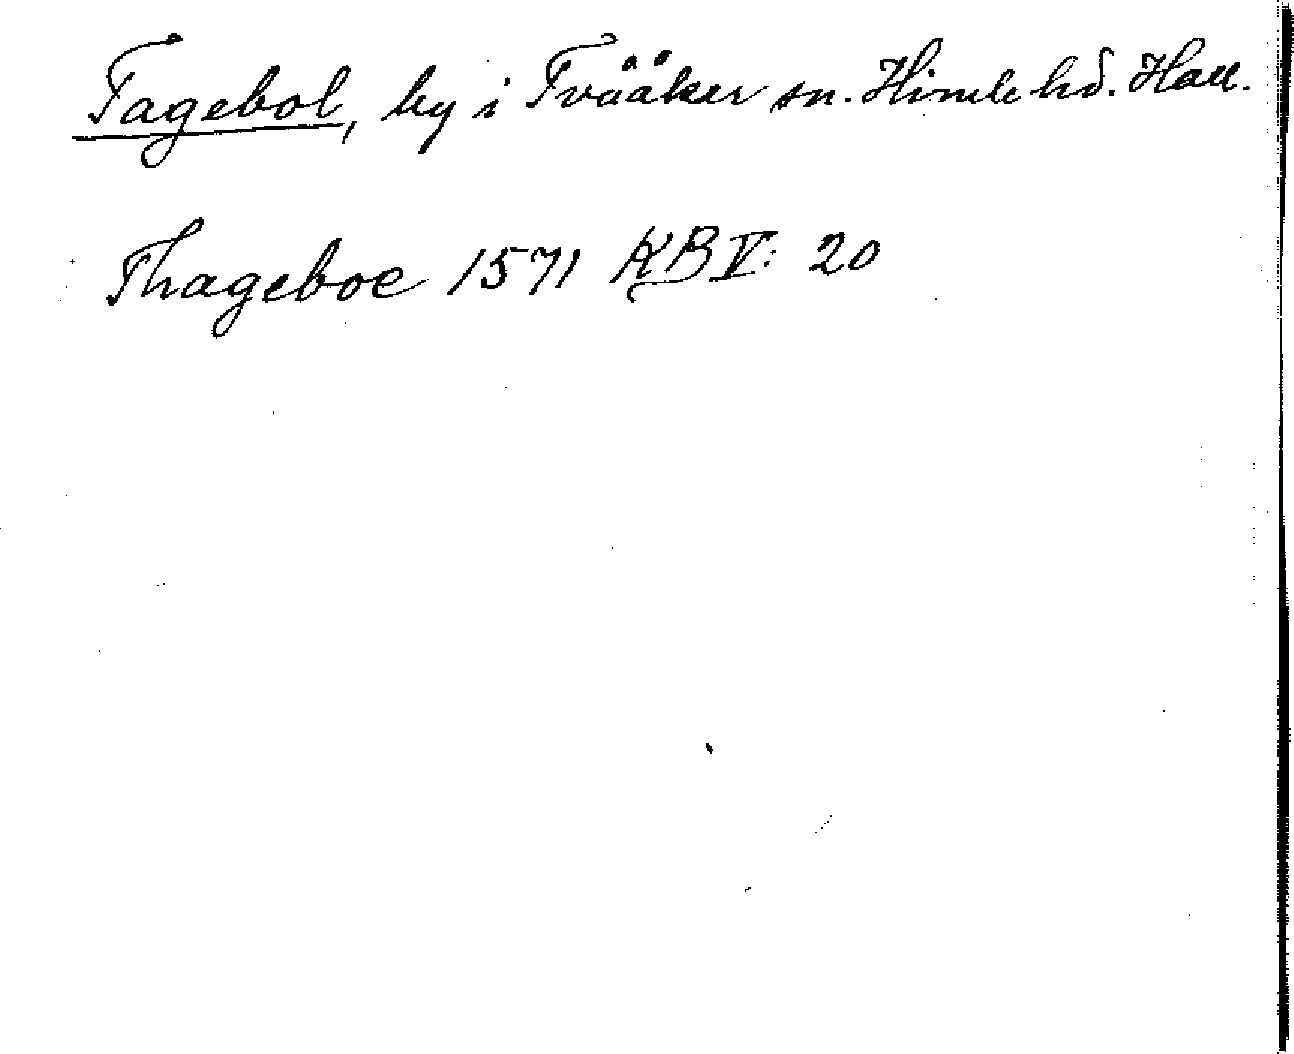 Tagebol, by i Tvååker sn. Himle hd. Hall.
Thageboe 1571 KB V: 20